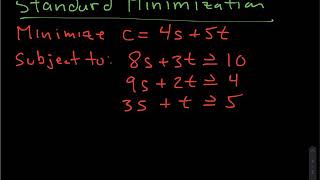 Standard Minimization
Minimize c = 4s + 5t
Subject to: 8s + 3t ≥ 10
9s + 2t ≥ 4
3s + t ≥ 5